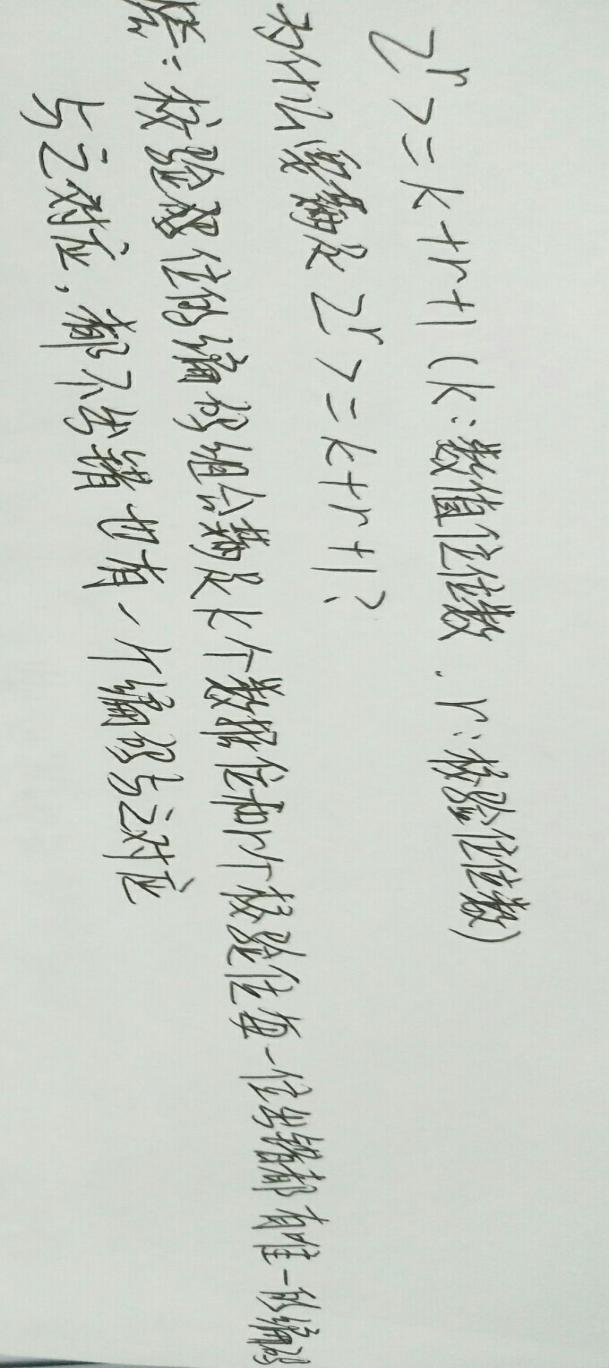 2^r >= k+r+1 (k:数值位位数.r:校验位位数)
为什么要满足 2^r >= k+r+1?
答:校验位的编码组合满足k个数据位和r个校验位每一位出错都有唯一的编码
与之对应,都不出错也有一个编码与之对应